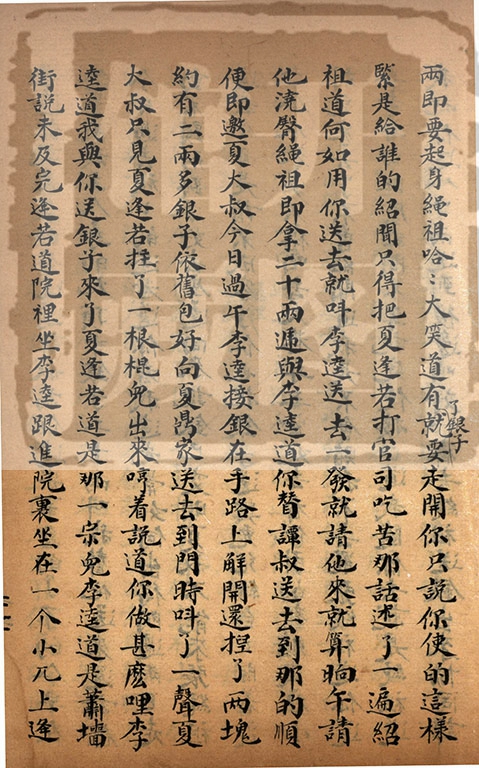 兩即要起身繩祖哈〻大笑道有了銀子就要走開你只說你使的這樣
緊是給誰的紹聞只得把夏逢若打官司吃苦那話述了一遍紹
祖道何如用你送去就呌李逵送去一發就請他來就算晌午請
他澆臀繩祖即拿二十兩遞與李逵道你替譚叔送去到那的順
便即邀夏大叔今日過午李逵接銀在手路上解開還捏了两塊
約有二兩多銀子依舊包好向夏鼎家送去到門時呌了一聲夏
大叔只見夏逢若拄了一根棍兒出來哼着說道你做甚麽哩李
逵道我與你送銀子來了夏逢若道是那一宗兒李逵道是蕭墻
街說未及完逢若道院裡坐李逵跟進院裏坐在一个小兀上逢